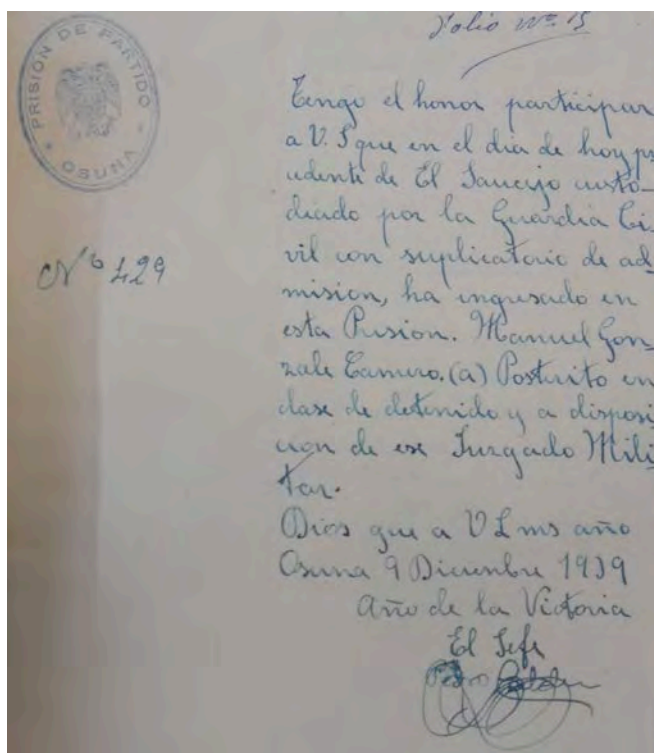 Folio nº 15
PRISIÓN DE PARTIDO
OSUNA
Tengo el honor participar
a V. S que en el dia de hoy pro
cedente de El Saucejo custo-
diado por la Guardia Ci-
vil con suplicatorio de ad-
Nº 429
mision, ha ingresado en
esta Prision. Manuel Gon-
zale Camero. (a) Posturito en
clase de detenido y a disposi
cion de ese Juzgado Mili
tar.
Dios que a V S ms año
Osuna 9 Diciembre 1939
Año de la Victoria
El Jefe
Pedro